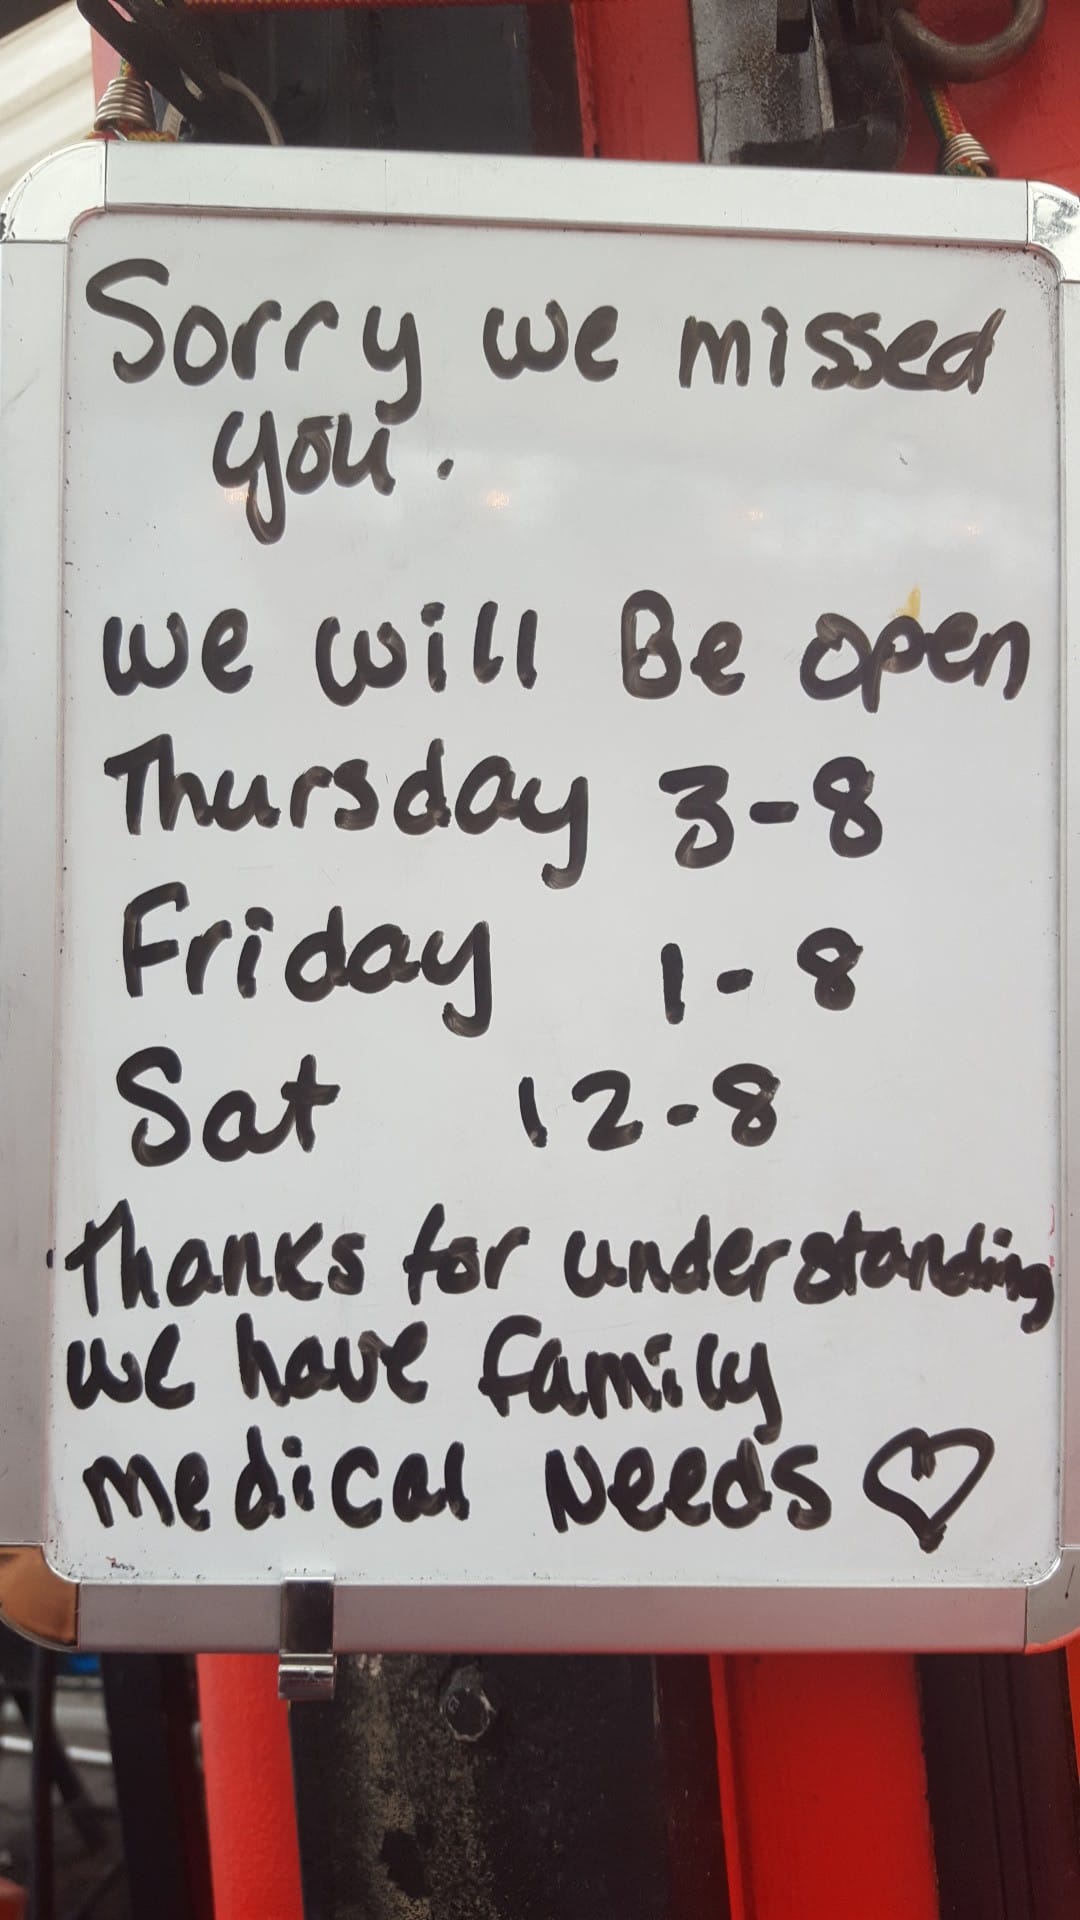 Sorry we missed
you.
we will Be open
Thursday 3-8
Friday 1-8
Sat 12-8
Thanks for understanding
we have family
medical Needs ♡